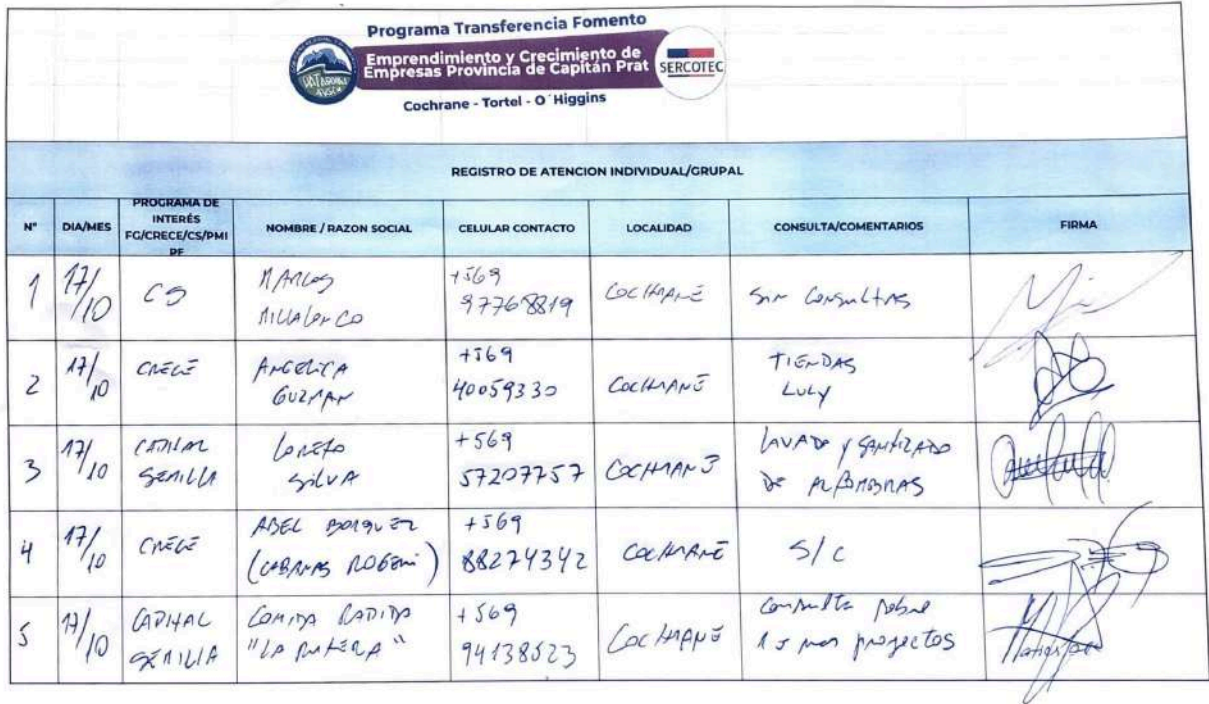 Programa Transferencia Fomento
Emprendimiento y Crecimiento de
Empresas Provincia de Capitán Prat
SERCOTEC
Cochrane - Tortel - O´Higgins
REGISTRO DE ATENCION INDIVIDUAL/GRUPAL
N° DIA/MES PROGRAMA DE INTERÉS FG/CRECE/CS/PMI PF NOMBRE / RAZON SOCIAL CELULAR CONTACTO LOCALIDAD CONSULTA/COMENTARIOS FIRMA
1 17/10 CS MARCOS MILLALONCO +569 97768819 COCHRANE Sin Consultas
2 17/10 CRECE ANGELICA GUZMAN +569 40059330 COCHRANE TIENDAS LULY
3 17/10 CAPITAL SEMILLA LORETO SILVA +569 57207757 COCHRANE LAVADO y SANITIZADO DE ALFOMBRAS
4 17/10 CRECE ABEL BORQUEZ (CABAÑAS +569 88274342 COCHRANE S/C
5 17/10 CAPITAL SEMILLA COMIDA RAPIDA "LA +569 94138523 COCHRANE Consulta sobre proyectos